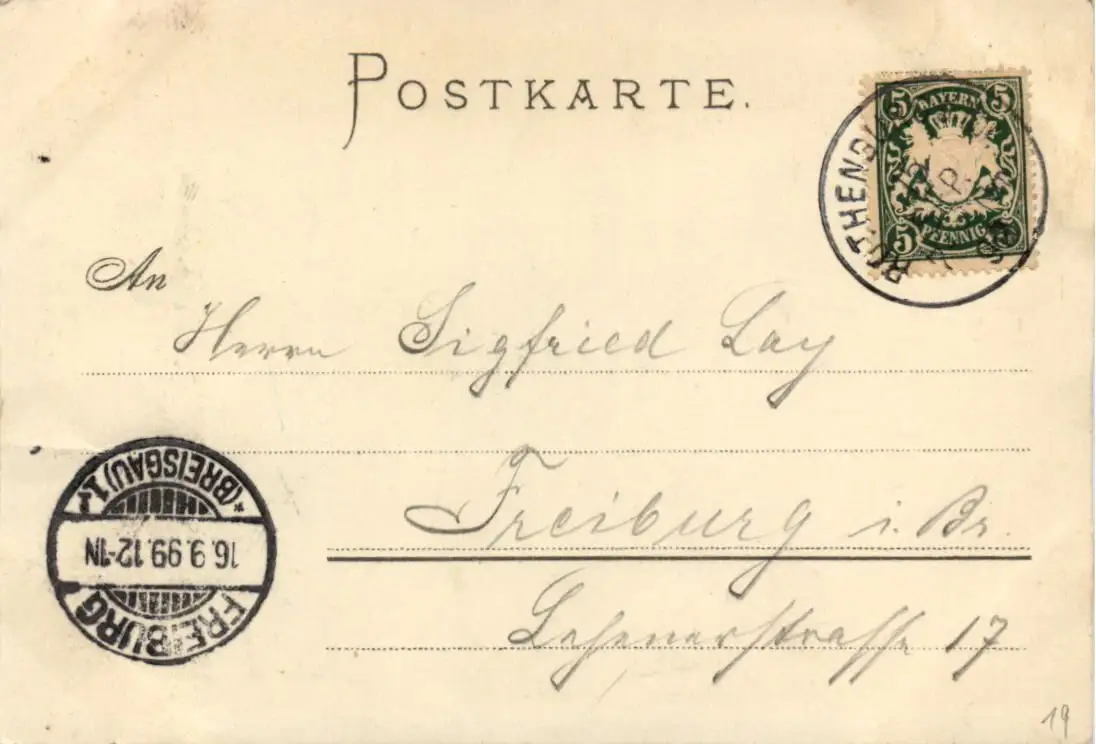 POSTKARTE.
5 BAYERN 5
5 PFENNIG
An
Herrn Sigfried Lay
Freiburg i. Br.
Lehenerstrasse 17
FREIBURG
16.9.99.12-1N
*(BREISGAU) 1.
19